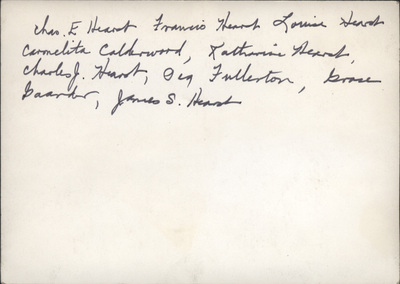 Chas. E Hearst Francis Hearst Louise Hearst
Carmelita Calderwood, Katharine Hearst,
Charles J. Hearst, Fullerton, Grace
Gaarder, James S. Hearst